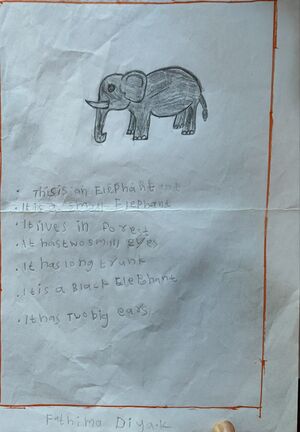 · This is an Elephant
· It is a small Elephant
· It lives in Forest
· It has two small eyes
· It has long trunk
· It is a Black Elephant
· It has Two big ears.
Fathima Diya.k